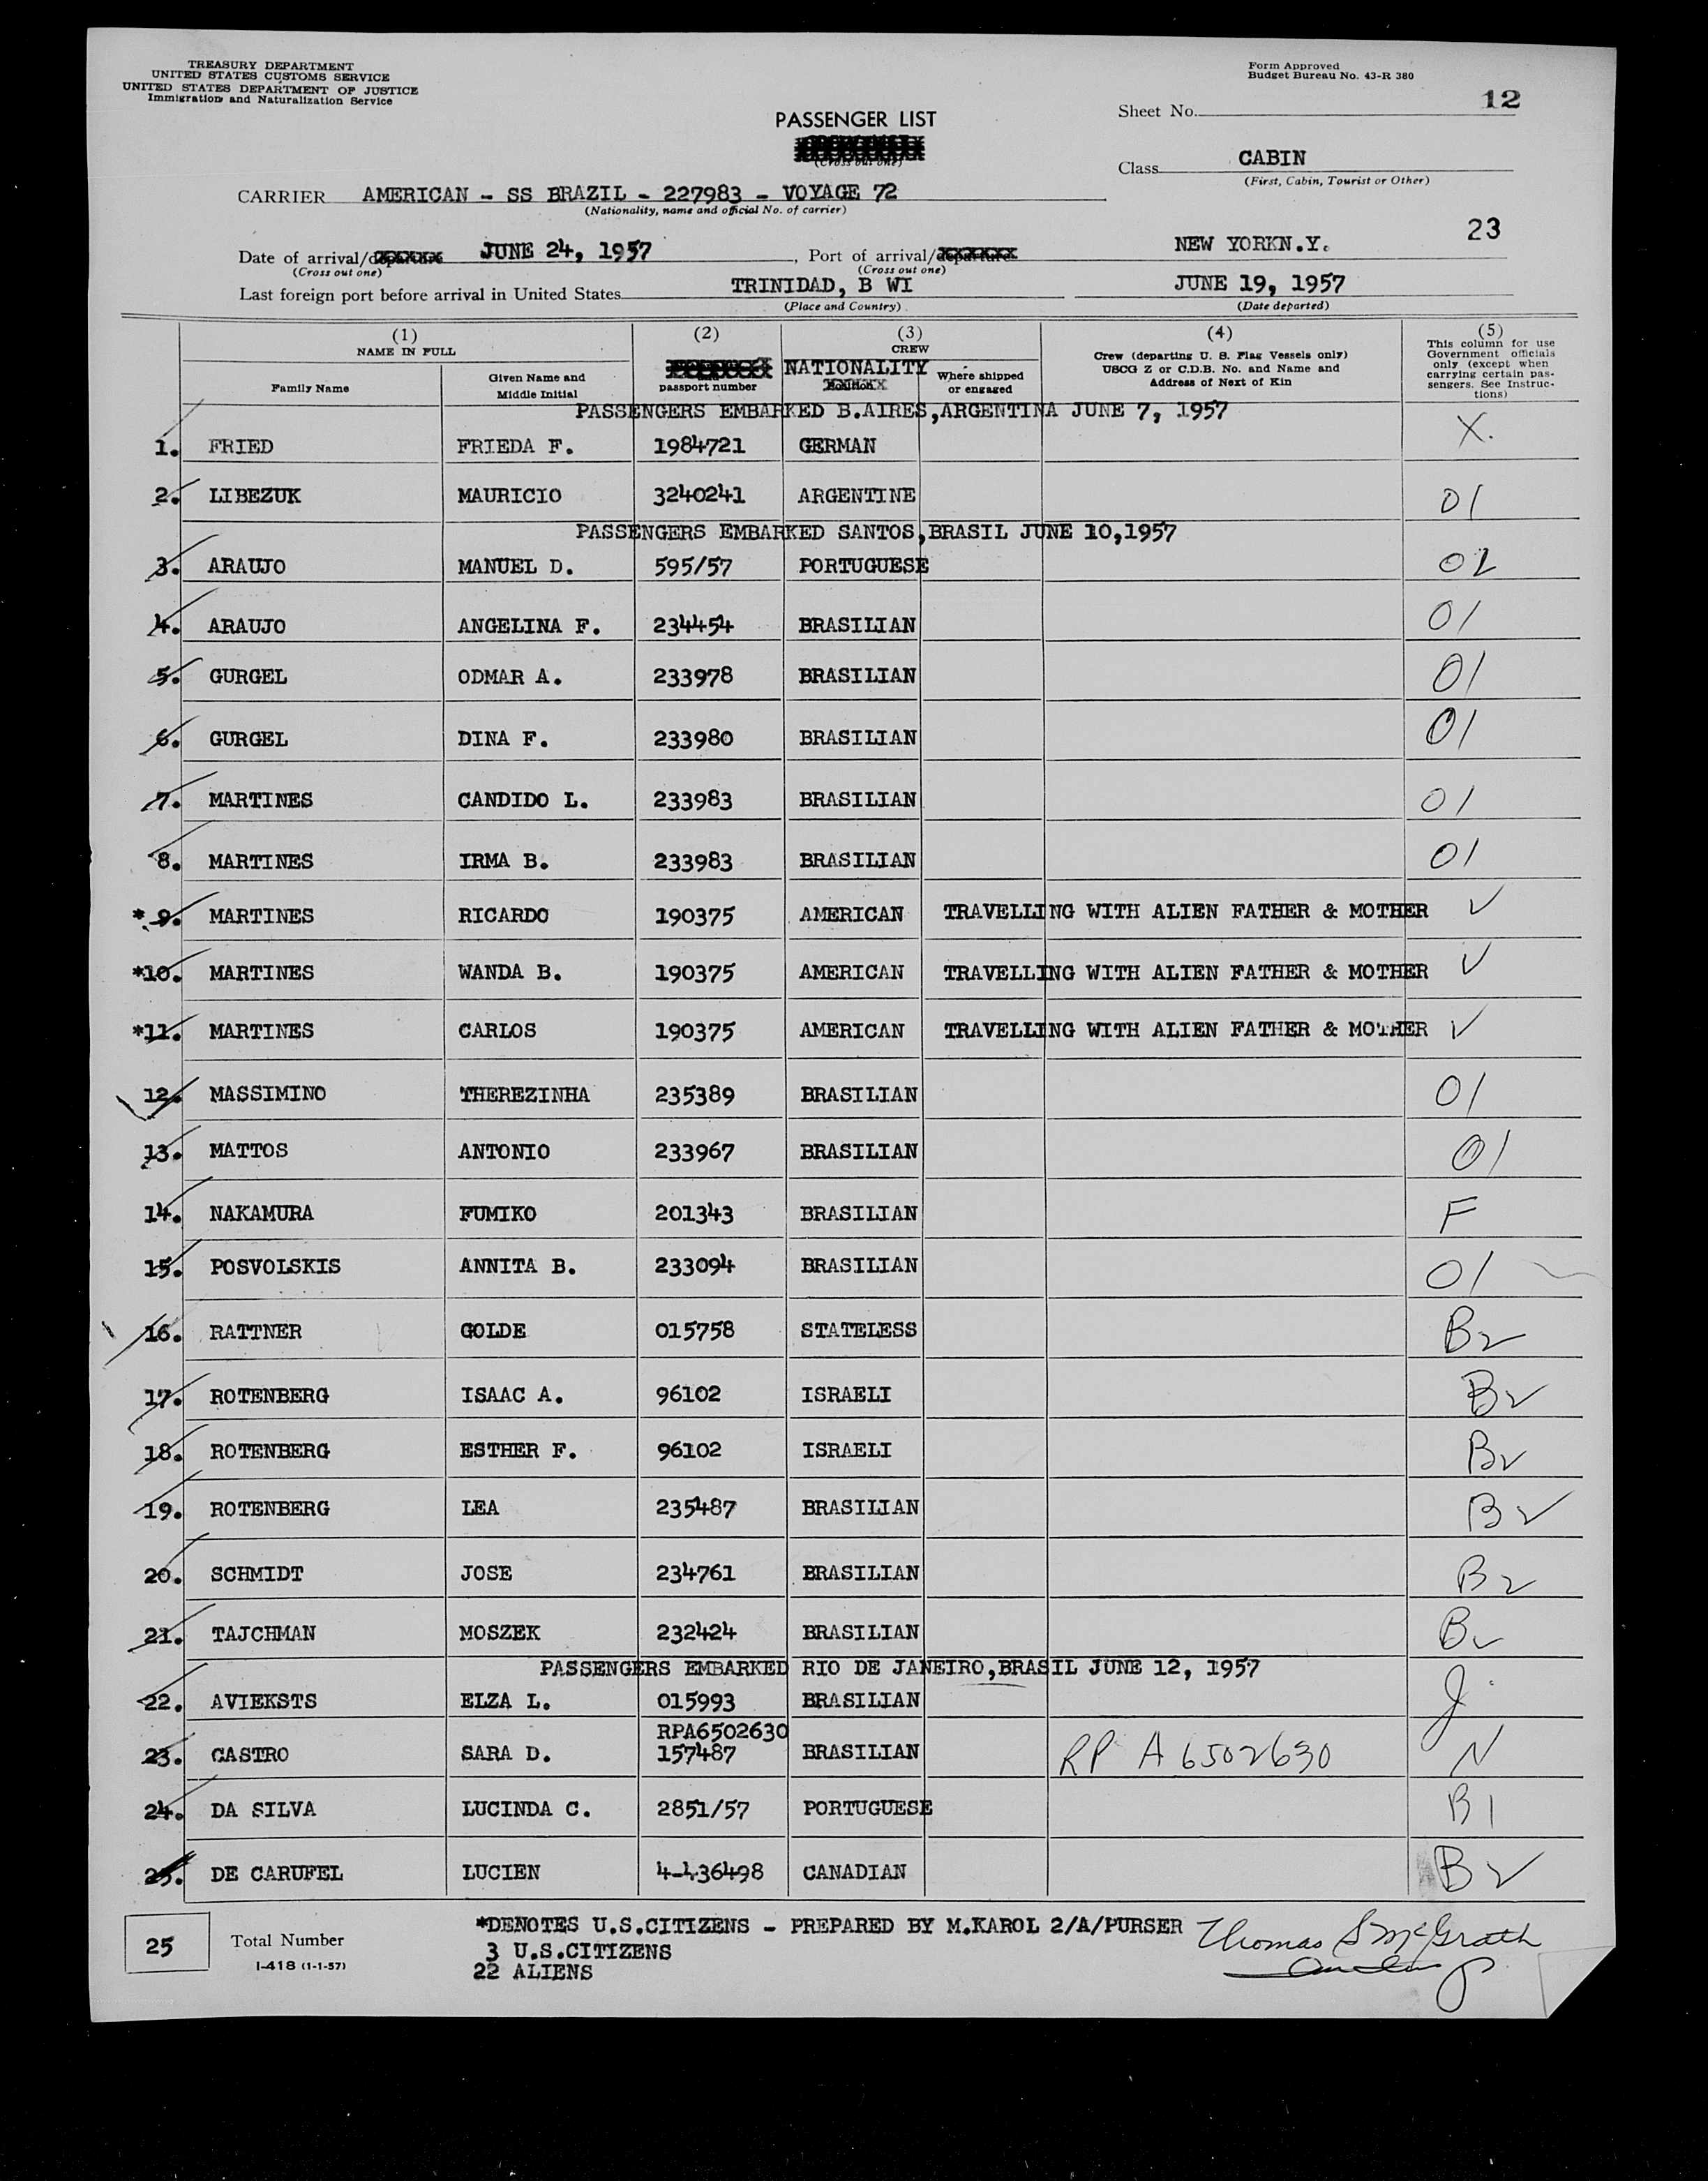 TREASURY DEPARTMENT
UNITED STATES CUSTOMS SERVICE
UNITED STATES DEPARTMENT OF JUSTICE
Immigration and Naturalization Service
Form Approved
Budget Bureau No. 43-R 380
Sheet No. 12
PASSENGER LIST
(Cross out one)
Class CABIN
(First, Cabin, Tourist or Other)
CARRIER AMERICAN - SS BRAZIL - 227983 - VOYAGE 72
(Nationality, name and official No. of carrier)
23
Date of arrival/departure JUNE 24, 1957, Port of arrival/departure NEW YORKN.Y.
(Cross out one) (Cross out one)
Last foreign port before arrival in United States TRINIDAD, B WI JUNE 19, 1957
(Place and Country) (Date departed)
(1) NAME IN FULL
Family Name
Given Name and Middle Initial
(2)
passport number
(3) CREW
NATIONALITY
Position
Where shipped or engaged
(4)
Crew (departing U. S. Flag Vessels only)
USCG Z or C.D.B. No. and Name and
Address of Next of Kin
(5)
This column for use
Government officials
only (except when
carrying certain pas-
sengers. See Instruc-
tions)
PASSENGERS EMBARKED B.AIRES,ARGENTINA JUNE 7, 1957
1. FRIED FRIEDA F. 1984721 GERMAN X.
2. LIBEZUK MAURICIO 3240241 ARGENTINE 01
PASSENGERS EMBARKED SANTOS,BRASIL JUNE 10,1957
3. ARAUJO MANUEL D. 595/57 PORTUGUESE 02
4. ARAUJO ANGELINA F. 234454 BRASILIAN 01
5. GURGEL ODMAR A. 233978 BRASILIAN 01
6. GURGEL DINA F. 233980 BRASILIAN 01
7. MARTINES CANDIDO L. 233983 BRASILIAN 01
8. MARTINES IRMA B. 233983 BRASILIAN 01
* 9. MARTINES RICARDO 190375 AMERICAN TRAVELLING WITH ALIEN FATHER & MOTHER ✓
*10. MARTINES WANDA B. 190375 AMERICAN TRAVELLING WITH ALIEN FATHER & MOTHER ✓
*11. MARTINES CARLOS 190375 AMERICAN TRAVELLING WITH ALIEN FATHER & MOTHER ✓
12. MASSIMINO THEREZINHA 235389 BRASILIAN 01
13. MATTOS ANTONIO 233967 BRASILIAN 01
14. NAKAMURA FUMIKO 201343 BRASILIAN F
15. POSVOLSKIS ANNITA B. 233094 BRASILIAN 01
16. RATTNER GOLDE 015758 STATELESS B2
17. ROTENBERG ISAAC A. 96102 ISRAELI B2
18. ROTENBERG ESTHER F. 96102 ISRAELI B2
19. ROTENBERG LEA 235487 BRASILIAN B2
20. SCHMIDT JOSE 234761 BRASILIAN B2
21. TAJCHMAN MOSZEK 232424 BRASILIAN B2
PASSENGERS EMBARKED RIO DE JANEIRO,BRASIL JUNE 12, 1957
22. AVIEKSTS ELZA L. 015993 BRASILIAN J
RPA6502630
23. CASTRO SARA D. 157487 BRASILIAN RP A6502630 N
24. DA SILVA LUCINDA C. 2851/57 PORTUGUESE B1
25. DE CARUFEL LUCIEN 4-436498 CANADIAN B2
25 Total Number
I-418 (1-1-57)
*DENOTES U.S.CITIZENS - PREPARED BY M.KAROL 2/A/PURSER
3 U.S.CITIZENS
22 ALIENS
Thomas S McGrath